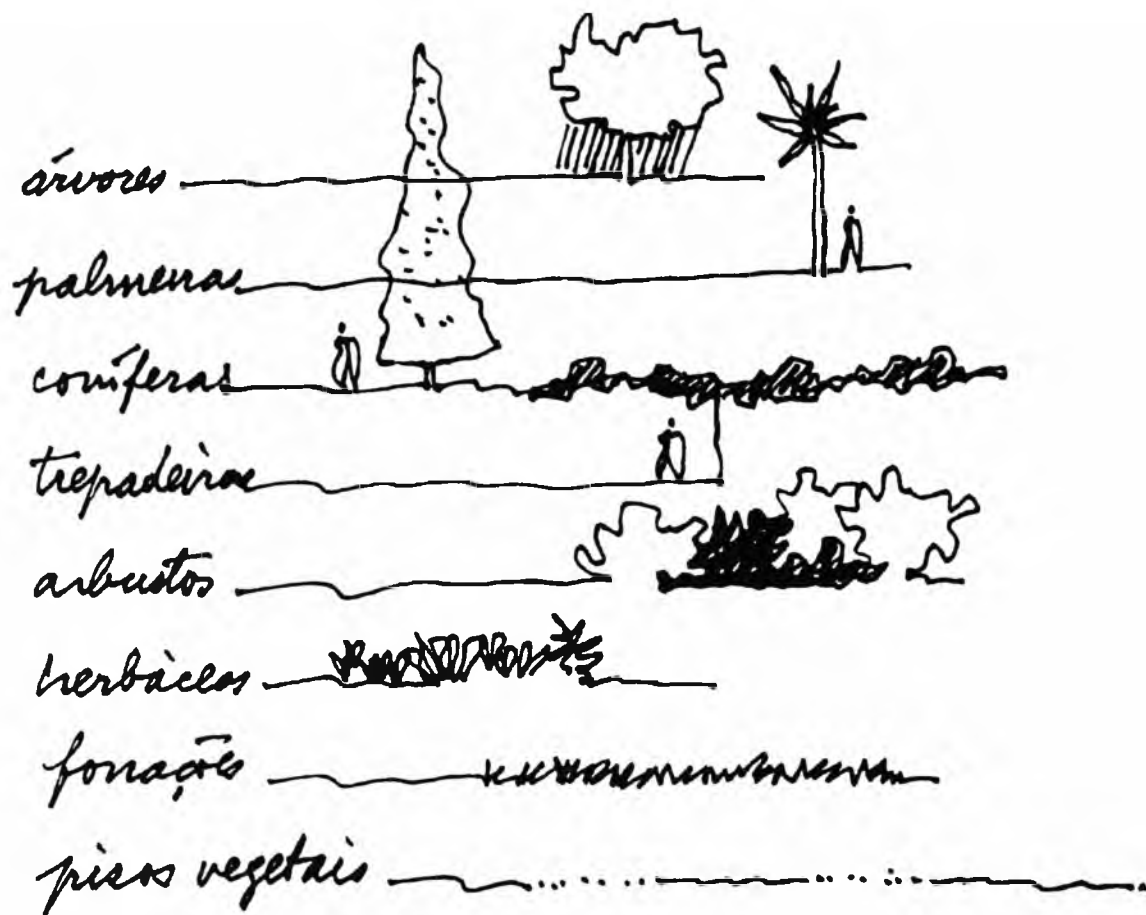 árvores
palmeiras
coníferas
trepadeiras
arbustos
herbáceas
forrações
pisos vegetais